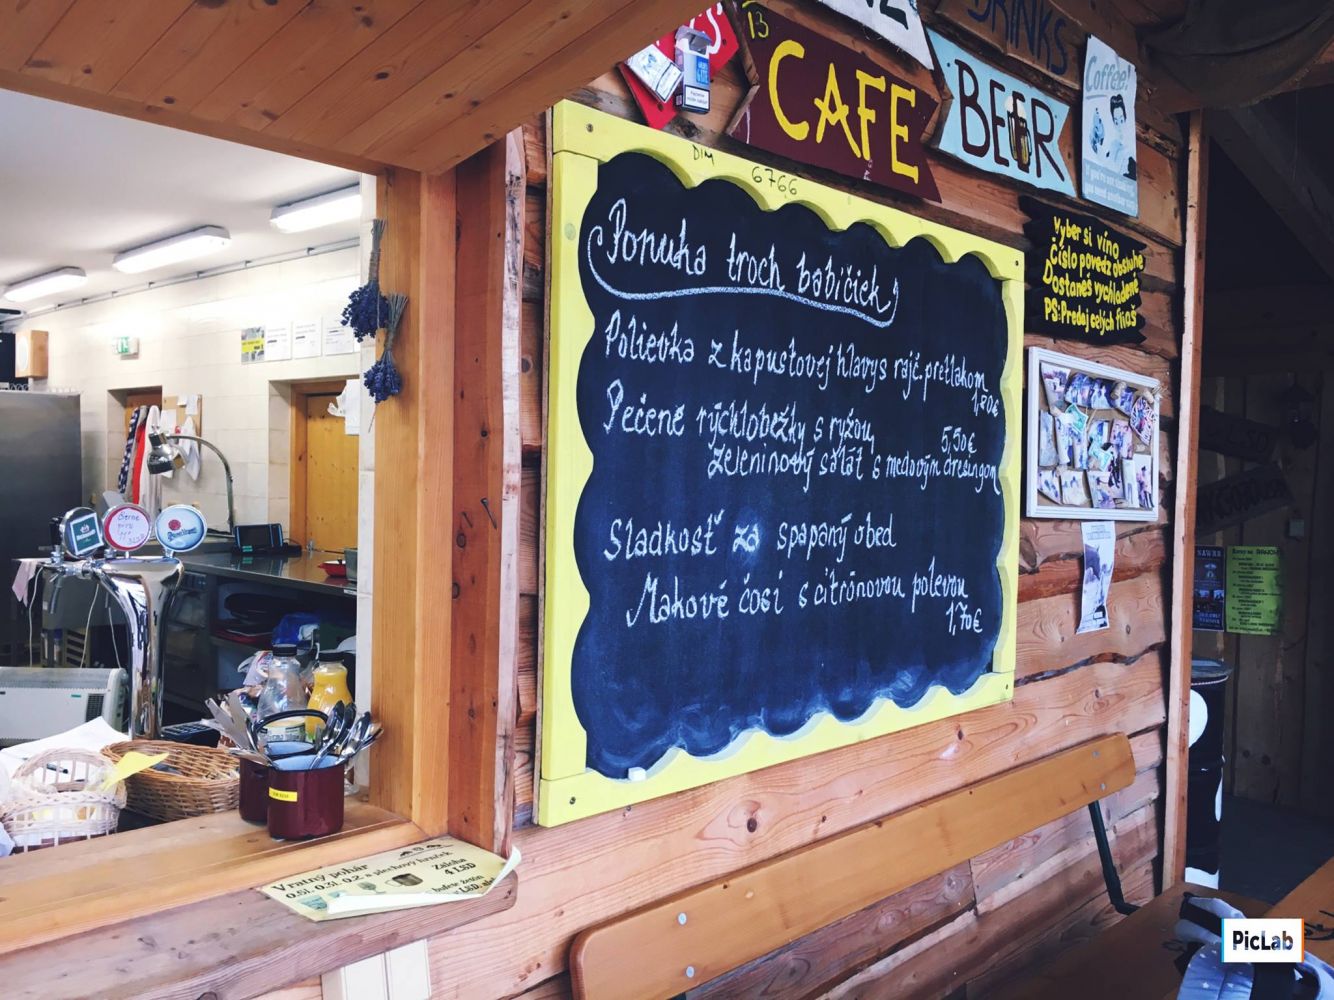 DRINKS
13
CAFE
BEER
Coffee!
DIM
6766
Ponuka troch babičiek
Polievka z kapustovej hlavy s rajč. pretlakom
1,80€
Pečené rýchlobežky s ryžou,
5,50€
zeleninový šalát s medovým dresingom
Sladkosť za spapaný obed
Makové čosi s citrónovou polevou
1,70€
Vyber si víno
Číslo povedz obsluhe
Dostaneš vychladené
PS: Predaj celých fliaš
Vratný pohár
0.5l, 0.3l, 0.2 a plechový hrnček
Záloha
4 LSD
PicLab